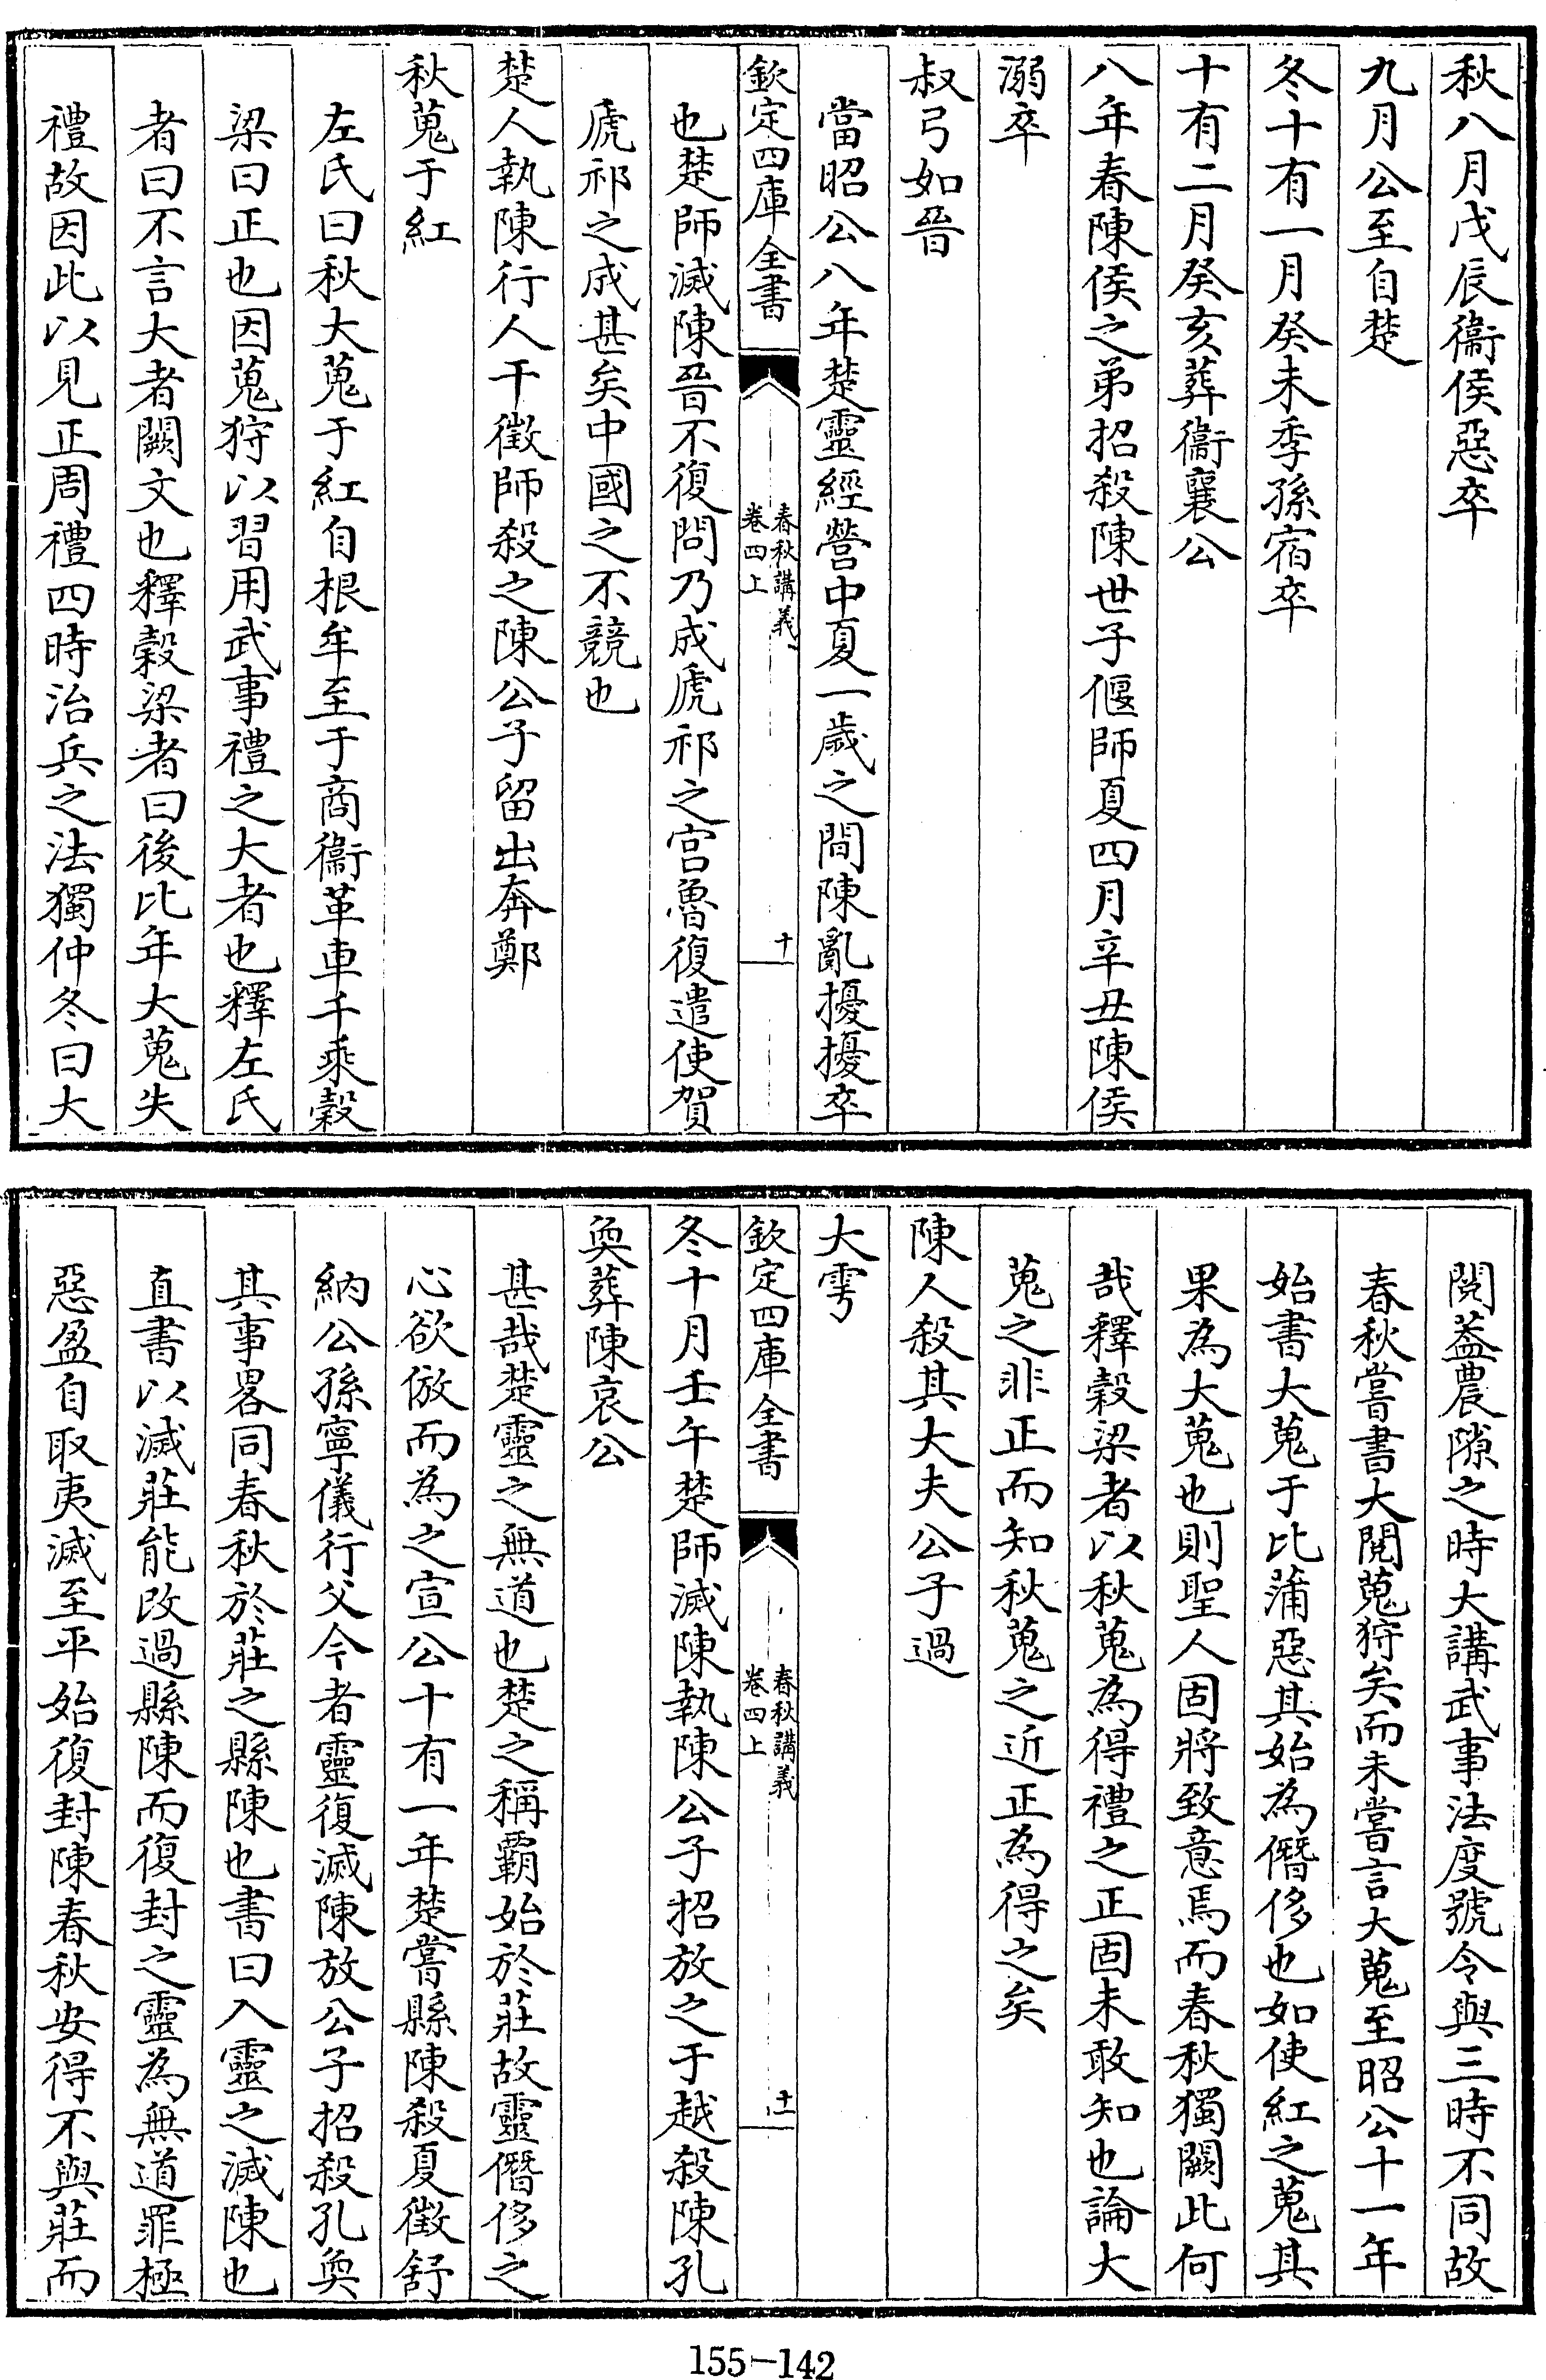 秋八月戊辰衞侯惡卒
九月公至自楚
冬十有一月癸未季孫宿卒
十有二月癸亥葬衞襄公
八年春陳侯之弟招殺陳世子偃師夏四月辛丑陳侯
溺卒
叔弓如晉
當昭公八年楚靈經營中夏一歲之間陳亂擾擾卒
欽定四庫全書
春秋講義
卷四上
十
也楚師滅陳晉不復問乃成虒祁之宫魯復遣使賀
虒祁之成甚矣中國之不競也
楚人執陳行人干徵師殺之陳公子留出奔鄭
秋蒐于紅
左氏曰秋大蒐于紅自根牟至于商衞革車千乘穀
梁曰正也因蒐狩以習用武事禮之大者也釋左氏
者曰不言大者闕文也釋穀梁者曰後比年大蒐失
禮故因此以見正周禮四時治兵之法獨仲冬曰大
閱葢農隙之時大講武事法度號令與三時不同故
春秋嘗書大閱蒐狩矣而未嘗言大蒐至昭公十一年
始書大蒐于比蒲惡其始為僭侈也如使紅之蒐其
果為大蒐也則聖人固將致意焉而春秋獨闕此何
哉釋穀梁者以秋蒐為得禮之正固未敢知也論大
蒐之非正而知秋蒐之近正為得之矣
陳人殺其大夫公子過
大雩
欽定四庫全書
春秋講義
卷四上
十一
冬十月壬午楚師滅陳執陳公子招放之于越殺陳孔
奐葬陳哀公
甚哉楚靈之無道也楚之稱霸始於莊故靈僭侈之
心欲倣而為之宣公十有一年楚嘗縣陳殺夏徵舒
納公孫寧儀行父今者靈復滅陳放公子招殺孔奐
其事畧同春秋於莊之縣陳也書曰入靈之滅陳也
直書以滅莊能改過縣陳而復封之靈為無道罪極
惡盈自取夷滅至平始復封陳春秋安得不與莊而
155-142